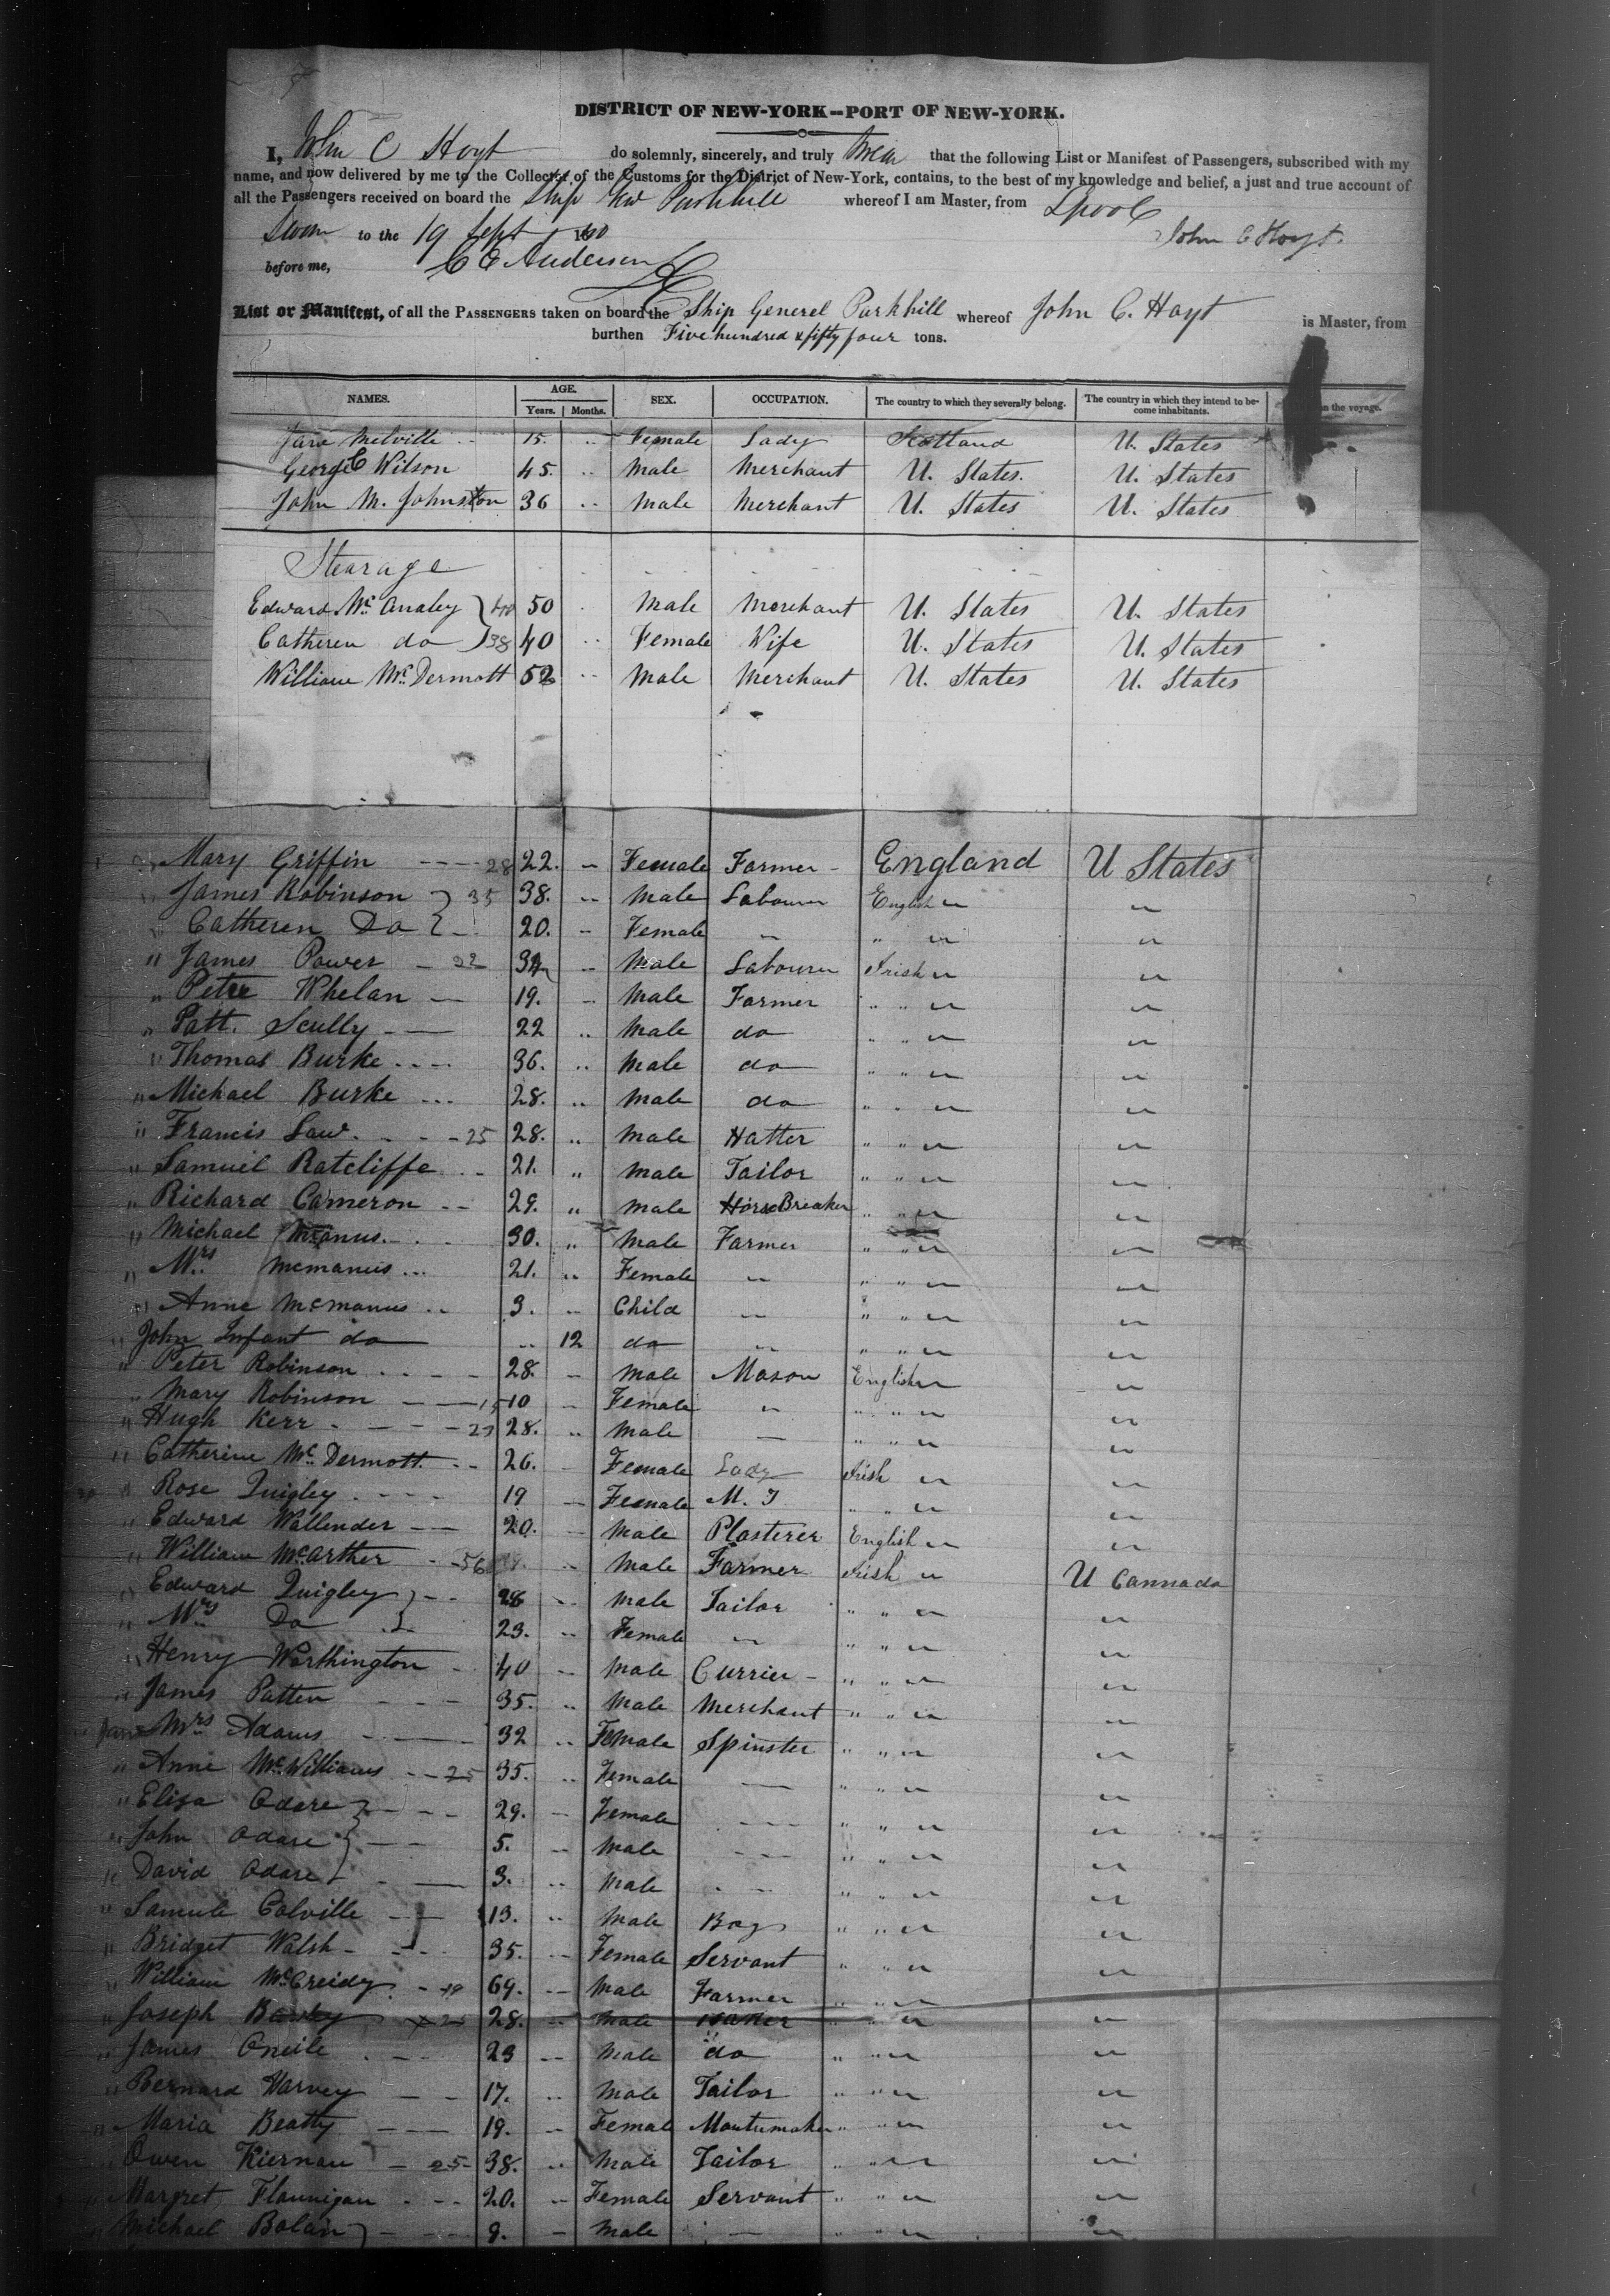 DISTRICT OF NEW-YORK--PORT OF NEW-YORK.
I, John C Hoyt do solemnly, sincerely, and truly Swear that the following List or Manifest of Passengers, subscribed with my
name, and now delivered by me to the Collector of the Customs for the District of New-York, contains, to the best of my knowledge and belief, a just and true account of
all the Passengers received on board the Ship Genl Parkhill whereof I am Master, from Lpool
Sworn to the 19 Sept 1840 John C Hoyt.
before me, C E Anderson
List or Manifest, of all the PASSENGERS taken on board the Ship Generel Parkhill whereof John C. Hoyt is Master, from
burthen Five hundred & fifty four tons.
NAMES. AGE. Years. Months. SEX. OCCUPATION. The country to which they severally belong. The country in which they intend to become inhabitants. on the voyage.
Jane Melville 15. .. Female Lady Scotland U. States
George C Wilson 45. .. Male Merchant U. States. U. States
John M. Johnston 36 .. Male Merchant U. States U. States
Stearage
Edward Mc Analey } 40 50 Male Merchant U. States U. States
Catheren do } 38 40 .. Female Wife U. States U. States
William Mc Dermott 52 .. Male Merchant U. States U. States
" Mary Griffin 28 22. Female Farmer England U States
" James Robinson } 35 38. .. Male Labourer English " "
" Catheren Do } 20. Female " " " "
" James Power 32 34 Male Labourer Irish " "
" Peter Whelan 19. Male Farmer " " " "
" Patt. Scully 22 .. Male do " " " "
" Thomas Burke 36. .. Male do " " " "
" Michael Burke 28. .. Male do " " " "
" Francis Law 25 28. .. Male Hatter " " " "
" Samuel Ratcliffe 21. " Male Tailor " " " "
" Richard Cameron 29. " Male Horse Breaker " " " "
" Michael McManus 30. " Male Farmer " " " "
" Mrs McManus 21. .. Female " " " " "
" Anne McManus 3. .. Child " " " " "
" John Infant do .. 12 do " " " " "
" Peter Robinson 28. Male Mason English " "
" Mary Robinson 15 10 Female " " " " "
" Hugh Kerr 28. .. Male " " " "
" Catherine Mc Dermott 26. Female Lady Irish " "
" Rose Quigley 19 Female M. T " " " "
" Edward Wallender 20. Male Plasterer English " "
" William McArther 56 .. Male Farmer Irish " U Cannada
" Edward Quigley } 28 Male Tailor " " " "
" Mrs Do } 23. .. Female " " " " "
" Henry Worthington 40 Male Currier " " " "
" James Patten 35. .. Male Merchant " " " "
" Jane Mrs Adams 32 .. Female Spinster " " " "
" Anne McWilliams 25 35. .. Female " " " "
" Elisa Odare } 29. Female " " " "
" John Odare } 5. Male " " " "
" David Odare } 3. .. Male " " " "
" Samule Colville 13. .. Male Boy " " " "
" Bridget Walsh 35. Female Servant " " " "
" William McCreidy 69. Male Farmer " " " "
" Joseph 25 28. Male Baker " " " "
" James Oneile 23 Male do " " " "
" Bernard Harvey 17. .. Male Tailor " " " "
" Maria Beatty 19. Femal Mantumaker " " " "
" Owen Kiernan 25 38. .. Male Tailor " " " "
" Margret Flannigan 20. Female Servant " " " "
" Michael Bolan } 9. Male " " " "